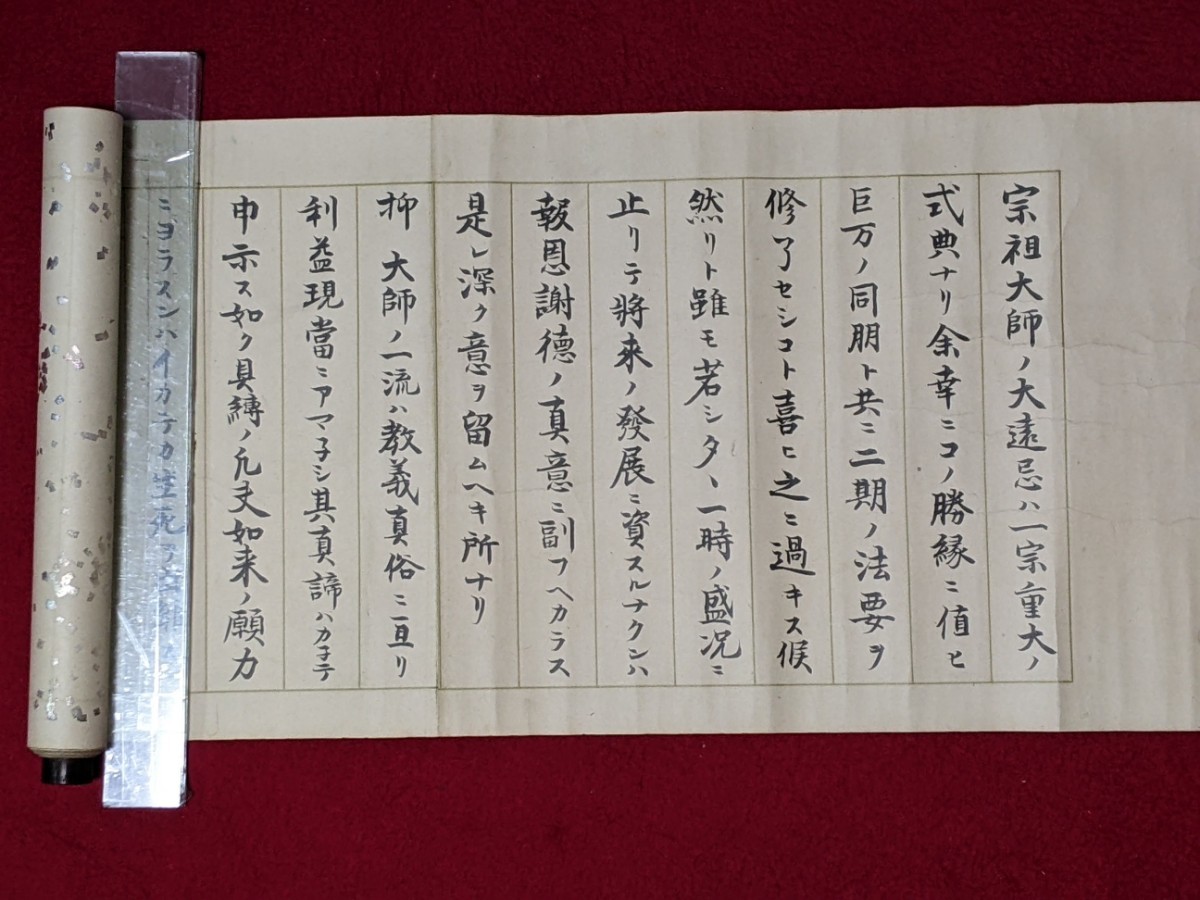 宗祖大師ノ大遠忌ハ一宗重大ノ
式典ナリ余幸ニコノ勝縁ニ値ヒ
巨万ノ同朋ト共ニ二期ノ法要ヲ
修了セシコト喜ヒ之ニ過キス候
然リト雖モ若シタヽ一時ノ盛况ニ
止リテ將来ノ發展ニ資スルナクンハ
報恩謝徳ノ真意ニ副フヘカラス
是レ深ク意ヲ留ムヘキ所ナリ
抑 大師ノ一流ハ教義真俗ニ亘リ
利益現當ニアマ子シ其真諦ハカ子テ
申示ス如ク具縛ノ凢夫如来ノ願力
ニヨラスンハイカテカ生死ヲ